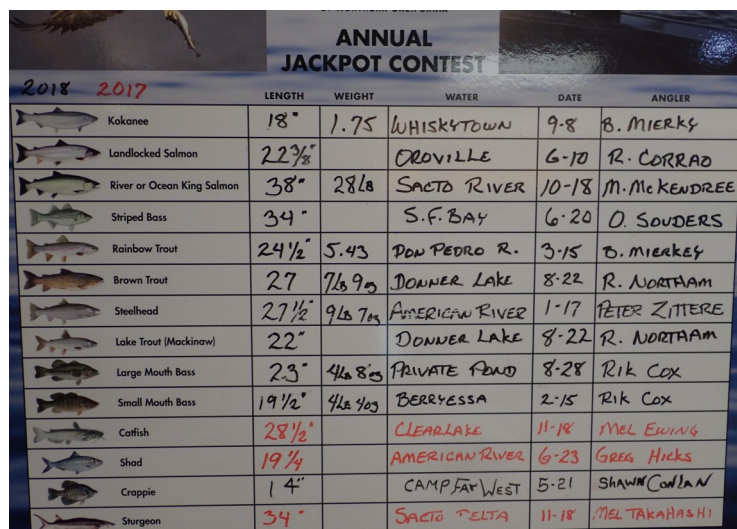 OF NORTHERN CALIFORNIA
ANNUAL
JACKPOT CONTEST
2018 2017
LENGTH WEIGHT WATER DATE ANGLER
Kokanee 18" 1.75 WHISKYTOWN 9-8 B. MIERKY
Landlocked Salmon 22 3/8" OROVILLE 6-10 R. CORRAO
River or Ocean King Salmon 38" 28LB SACTO RIVER 10-18 M. MCKENDREE
Striped Bass 34" S.F. BAY 6-20 O. SOUDERS
Rainbow Trout 24 1/2" 5.43 DON PEDRO R. 3-15 B. MIERKEY
Brown Trout 27 7LB 9oz DONNER LAKE 8-22 R. NORTHAM
Steelhead 27 1/2" 9LB 7oz AMERICAN RIVER 1-17 PETER ZITTERE
Lake Trout (Mackinaw) 22" DONNER LAKE 8-22 R. NORTHAM
Large Mouth Bass 23" 4LB 8oz PRIVATE POND 8-28 RIK COX
Small Mouth Bass 19 1/2" 4LB 4oz BERRYESSA 2-15 RIK COX
Catfish 28 1/2" CLEARLAKE 11-18 MEL EWING
Shad 19 1/4 AMERICAN RIVER 6-23 GREG HICKS
Crappie 14" CAMP FAR WEST 5-21 SHAWN CONLAN
Sturgeon 34" SACTO DELTA 11-18 MEL TAKAHASHI